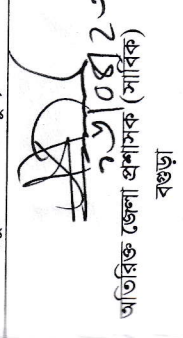 অতিরিক্ত জেলা প্রশাসক (সার্বিক)
বগুড়া